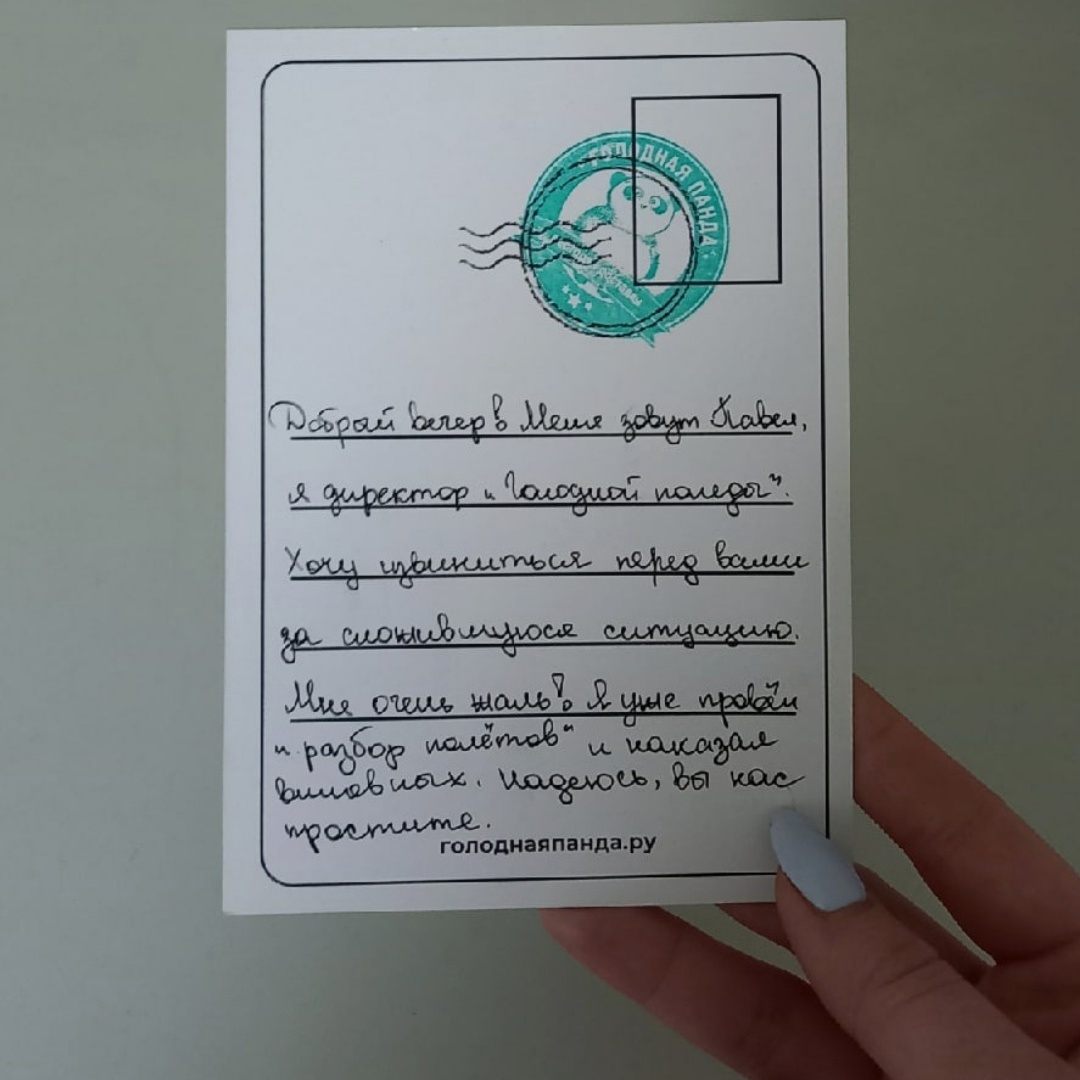 ГОЛОДНАЯ ПАНДА
Добрый вечер! Меня зовут Павел,
я директор "Голодной панды".
Хочу извиниться перед вами
за сложившуюся ситуацию.
Мне очень жаль! Я уже провёл
"разбор полётов" и наказал
виновных. Надеюсь, вы нас
простите.
голоднаяпанда.ру